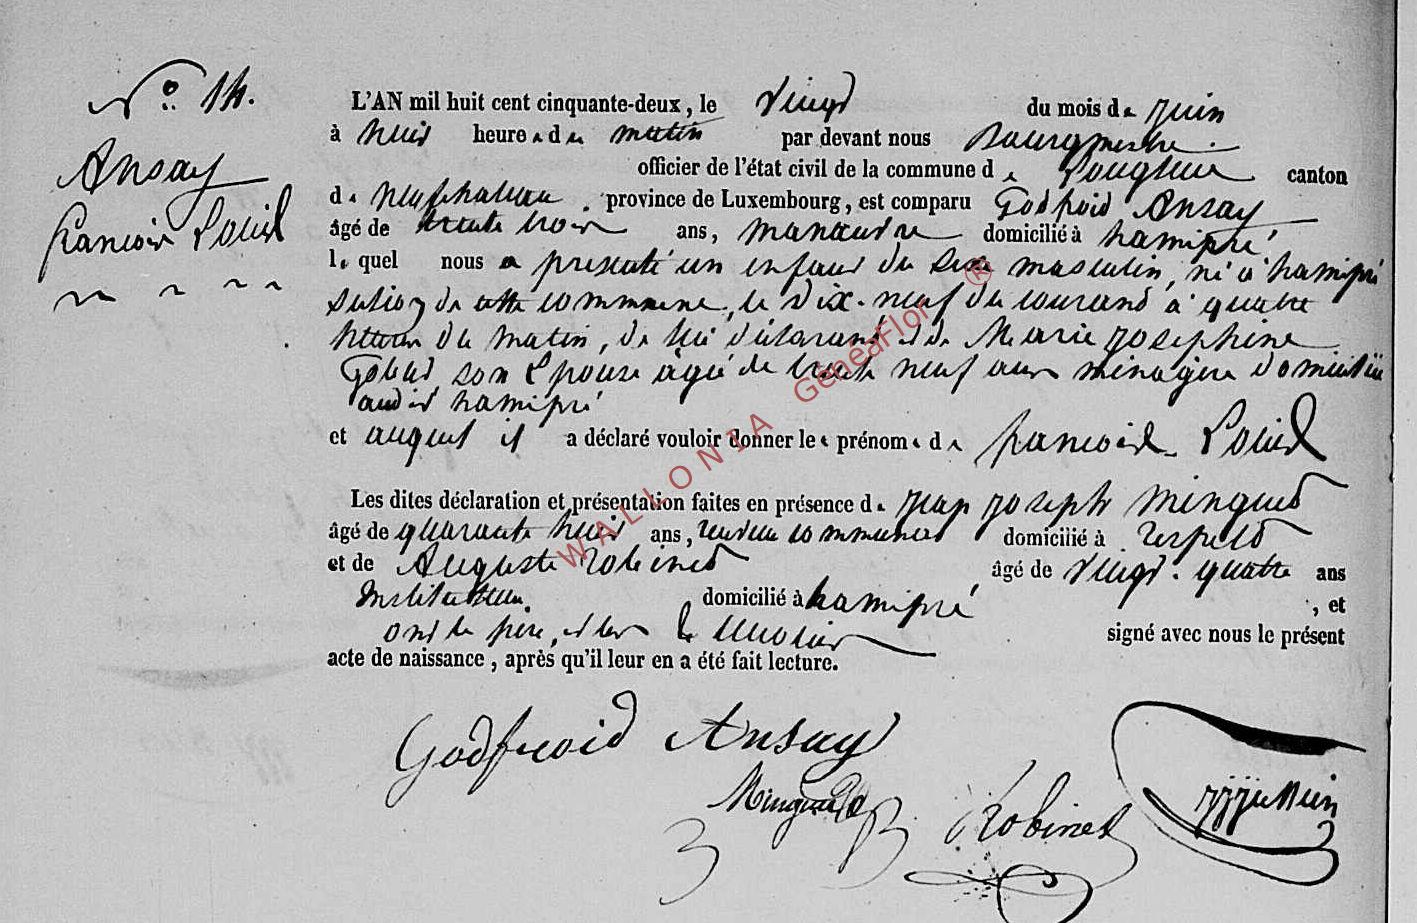 N° 14.
Ansay
francois Louis
L'AN mil huit cent cinquante-deux, le vingt du mois de juin
à huit heures du matin par devant nous Bourgmestre
officier de l'état civil de la commune de Longlier canton
de neufchateau province de Luxembourg, est comparu Godfroid Ansay
âgé de trente trois ans, manœuvre domicilié à hamipré
lequel nous a presenté un enfant du sexe masculin, né à hamipré
section de cette commune, le dix-neuf du courant à quatre
heures du matin, de lui déclarant et de Marie josephine
son Epouse âgée de trente neuf ans ménagère domiciliée
audit hamipré
et auquel il a déclaré vouloir donner les prénoms de francois Louis
Les dites déclaration et présentation faites en présence de jean joseph Minguet
âgé de quarante huit ans, receveur communal domicilié à respelt
et de Auguste robinet âgé de vingt-quatre ans
Instituteur domicilié à hamipré, et
ont le père, et les témoins signé avec nous le présent
acte de naissance, après qu'il leur en a été fait lecture.
Godfroid Ansay
Minguet
Robinet
WALLONIA GénéaFlor ®